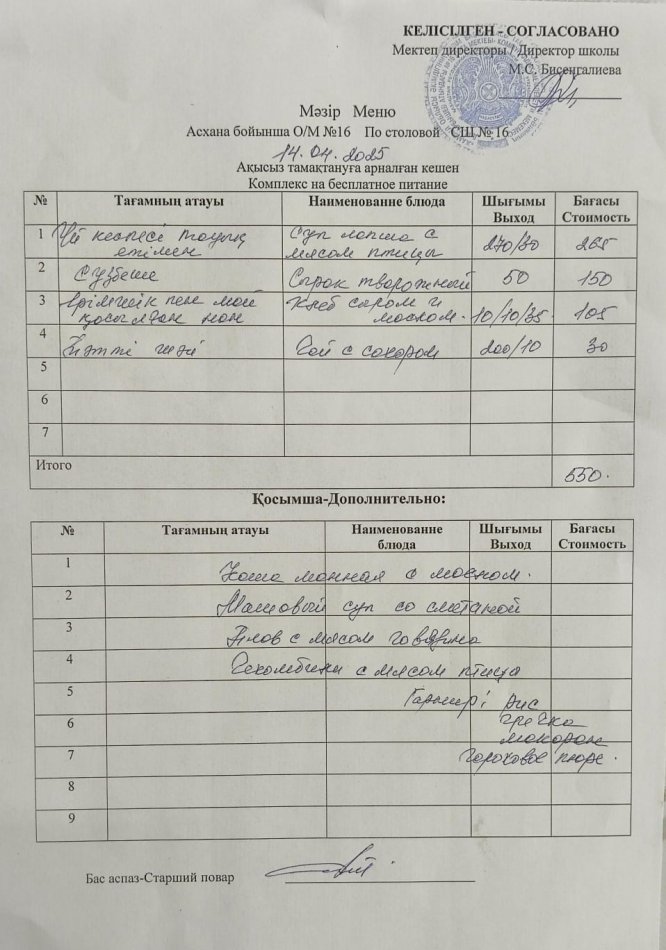 КЕЛІСІЛГЕН - СОГЛАСОВАНО
Мектеп директоры / Директор школы
М.С. Бисенгалиева
Мәзір Меню
Асхана бойынша О/М №16 По столовой СШ № 16
14.04.2025
Ақысыз тамақтануға арналған кешен
Комплекс на бесплатное питание
№ Тағамның атауы Наименование блюда Шығымы Выход Бағасы Стоимость
1 Үй кеспесі тауық етімен Суп лапша с мясом птицы 270/30 265
2 Сүзбеше Сырок творожный 50 150
3 Ірімшік пен май қосылған нан Хлеб сыром и маслом. 10/10/35 105
4 Тәтті шәй Чай с сахаром 200/10 30
5
6
7
Итого 550.
Қосымша-Дополнительно:
№ Тағамның атауы Наименование блюда Шығымы Выход Бағасы Стоимость
1 Каша манная с маслом.
2 Машовый суп со сметаной
3 Плов с мясом говядина
4 с мясом птица
5 Гарнир: рис
6 гречка
макарон
7 гороховое пюре.
8
9
Бас аспаз-Старший повар